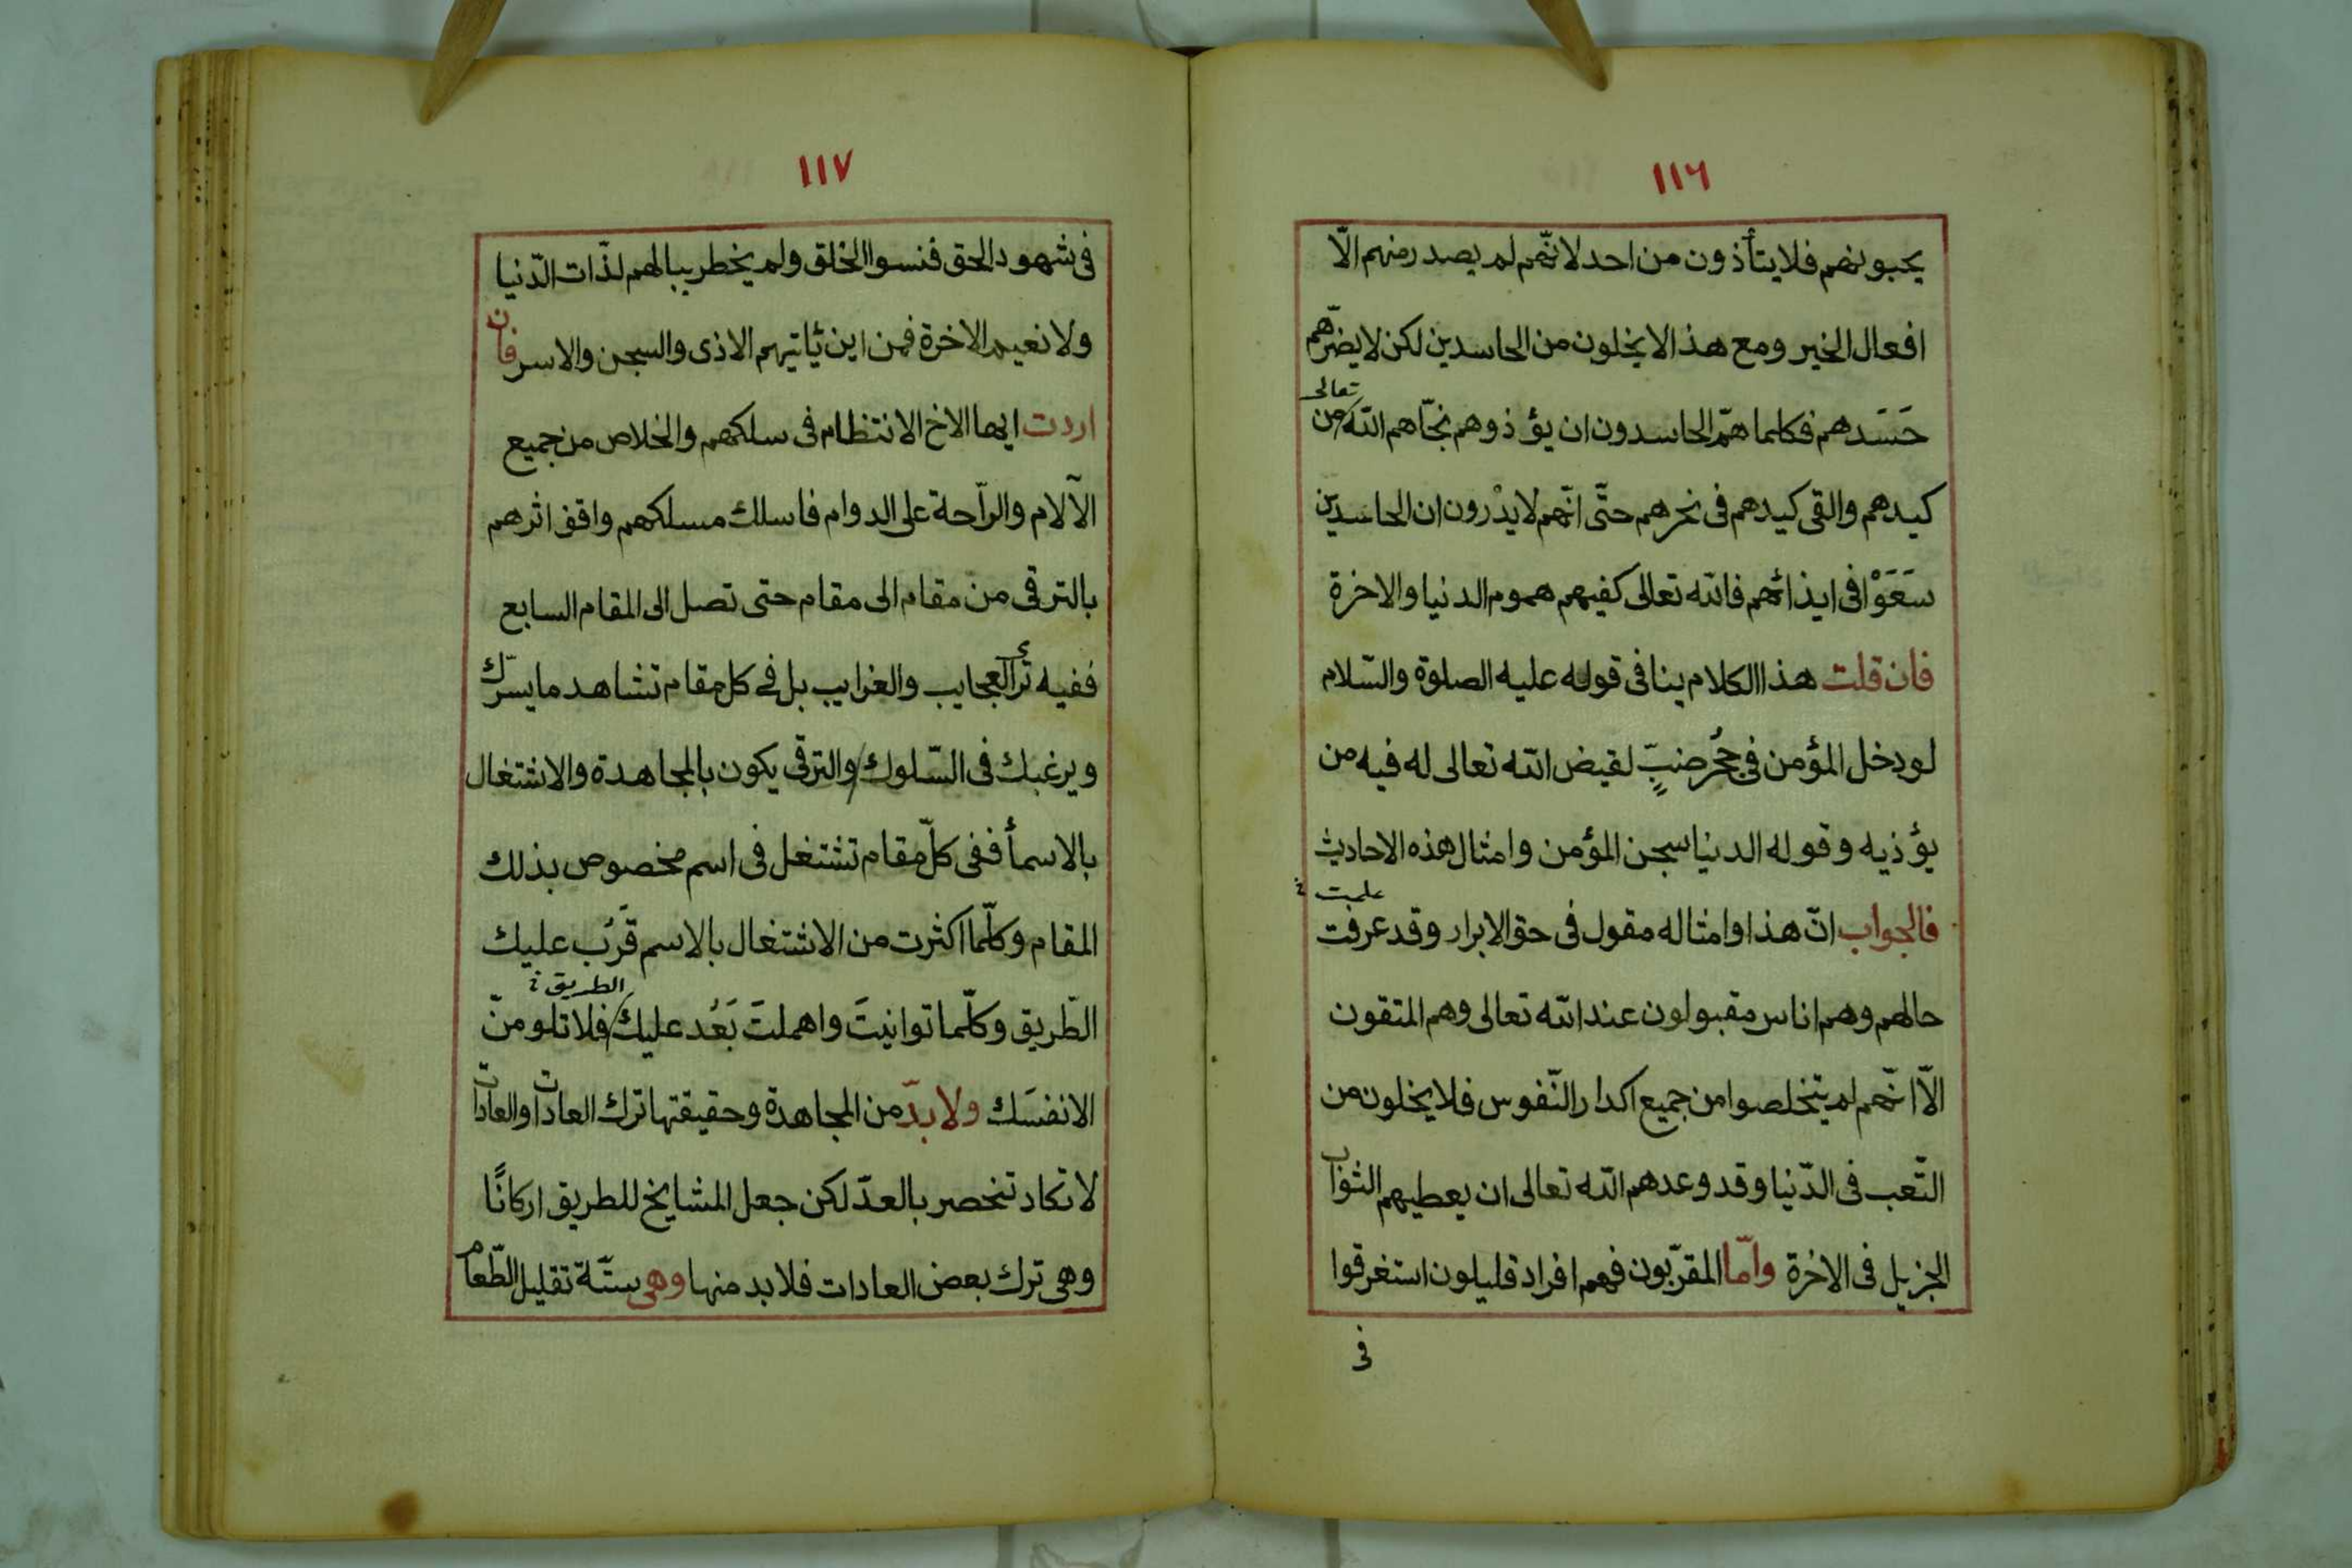 ١١٦
يحبونهم فلا يتأذون من احد لانّهم لم يصدر منهم الّا
افعال الخير ومع هذا لا يخلون من الحاسدين لكن لا يضرّهم
تعالى
حَسَدهم فكلما همّ الحاسدون ان يؤذوهم نجّاهم الله من
كيدهم والقى كيدهم في نحرهم حتّى انّهم لا يدْرون ان الحاسدين
سَعَوْا في ايذائهم فالله تعالى كفيهم هموم الدنيا والاخرة
فان قلت هذا الكلام ينافى قوله عليه الصلوة والسّلام
لو دخل المؤمن في جُحْر ضبٍّ لقيض الله تعالى له فيه من
يؤذيه وقوله الدنيا سجن المؤمن وامثال هذه الاحاديث
علمت
فالجواب انّ هذا وامثاله مقول فى حق الابرار وقد عرفت
حالهم وهم اناس مقبولون عند الله تعالى وهم المتقون
الّا انّهم لم يتخلصوا من جميع اكدار النّفوس فلا يخلون من
التّعب فى الدّنيا وقد وعدهم الله تعالى ان يعطيهم الثواب
الجزيل فى الاخرة وامّا المقرّبون فهم افراد قليلون استغرقوا
فى
١١٧
فى شهود الحق فنسوا الخلق ولم يخطر ببالهم لذّات الدّنيا
ولا نعيم الاخرة فمن اين يأتيهم الاذى والسجن والاسر فان
اردت ايها الاخ الانتظام فى سلكهم والخلاص من جميع
الآلام والرّاحة على الدوام فاسلك مسلكهم واقف اثرهم
بالترقى من مقام الى مقام حتى تصل الى المقام السابع
ففيه ترى العجايب والغرايب بل فى كل مقام تشاهد ما يسرّك
ويرغبك فى السّلوك والترقى يكون بالمجاهدة والاشتغال
بالاسمأ ففى كلّ مقام تشتغل فى اسم مخصوص بذلك
المقام وكلّما اكثرت من الاشتغال بالاسم قَرُب عليك
الطريق
الطّريق وكلّما توانيتَ واهملتَ بَعُد عليك فلا تلومنّ
الا نفسَك ولا بدّ من المجاهدة وحقيقتها ترك العادات والعادات
لا تكاد تنحصر بالعدّ لكن جعل المشايخ للطريق اركانًا
وهى ترك بعض العادات فلا بد منها وهى ستّة تقليل الطّعام